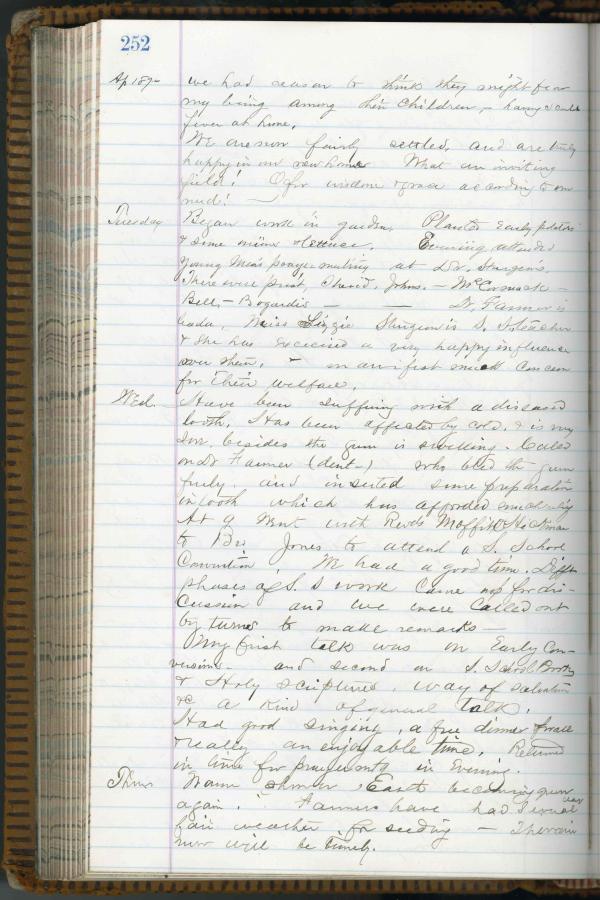 252
Ap 189- we had reason to think they might fear
my being among their children,
fever at home.
We are now fairly settled, and are truly
happy in our new home What an inviting
field! O for wisdom & grace according to our
need!
Tuesday Began work in garden. Planted Early potatoes
& some onions & lettuce. Evening attended
Young Men's prayer meeting at Dr. Sturgeon's.
There were present, Johns. - McCormack -
Bell - Bogardis - Dr. Farmer is
leader, Miss Lizzie Sturgeon is S. S. teacher
& she has exercised a very happy influence
over them, - manifest much concern
for their welfare.
Wed. Have been suffering with a diseased
tooth. Has been affected by cold, & is very
sore, besides the gum is swelling. Called
on Dr Farmer (dent-) who bled the gum
freely, and inserted some preparation
in tooth which has afforded
At 9 Went with Revds Moffitt
to Bro Jones to attend a S. School
Convention! We had a good time. Difft
phases of S. S work came up for dis-
cussion and we were called out
by turns to make remarks -
My first talk was on Early Con-
versions - and second on S. School Books
& Holy scriptures, way of salvation
&c a kind of general talk.
Had good singing, a free dinner for all
& really an enjoyable time. Returned
in time for prayer in Evening.
Thur Warm shower, Earth becoming green
again. Farmers have had several
fair weather for seeding -
now will be timely.